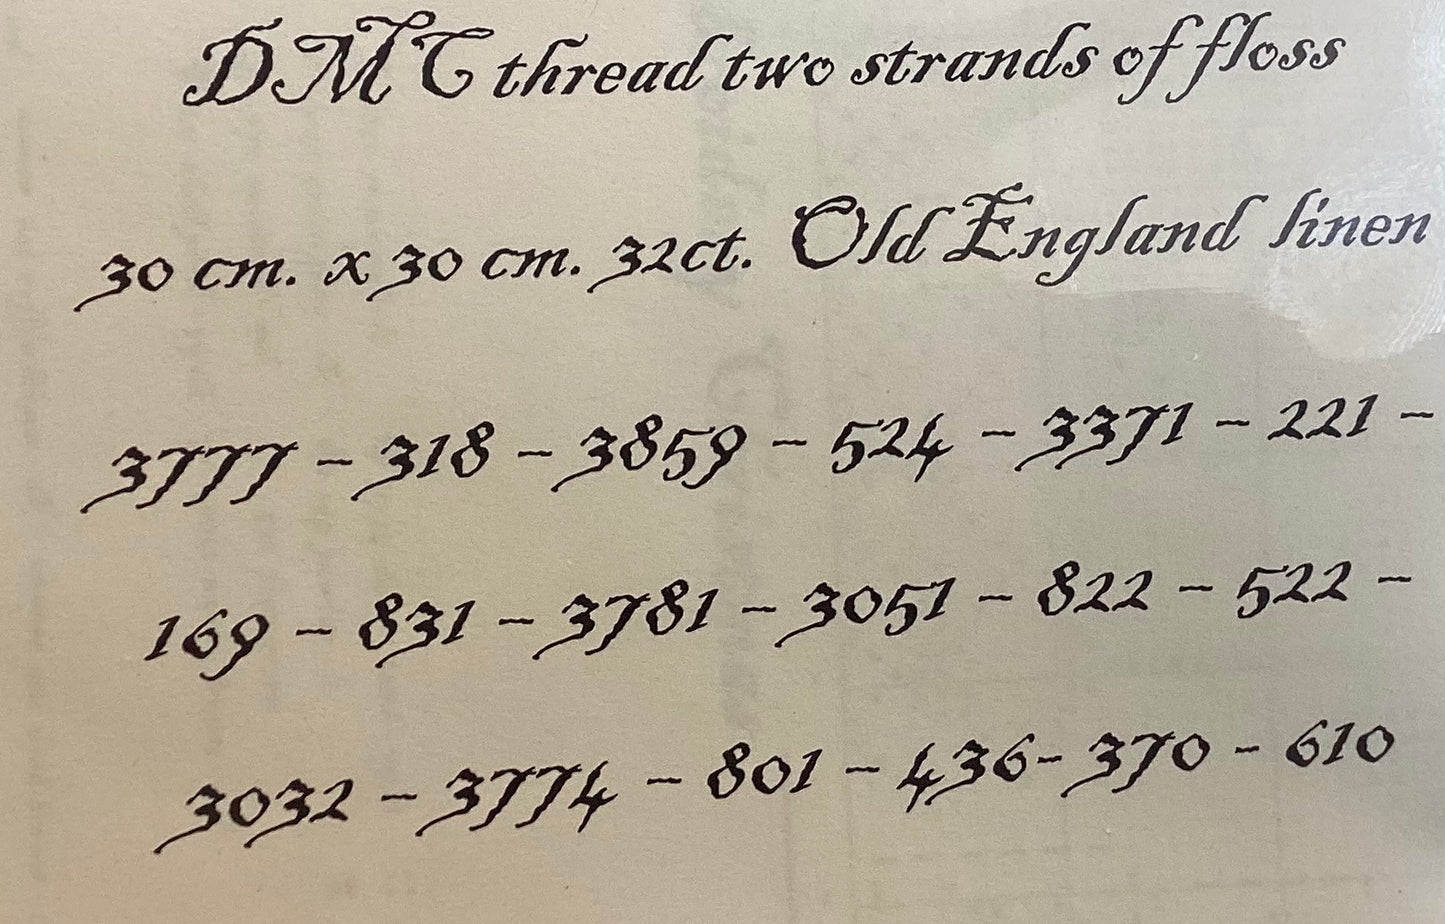 DMC thread two strands of floss
30 cm. x 30 cm. 32ct. Old England linen
3777 - 318 - 3859 - 524 - 3371 - 221 -
169 - 831 - 3781 - 3051 - 822 - 522 -
3032 - 3774 - 801 - 436- 370 - 610